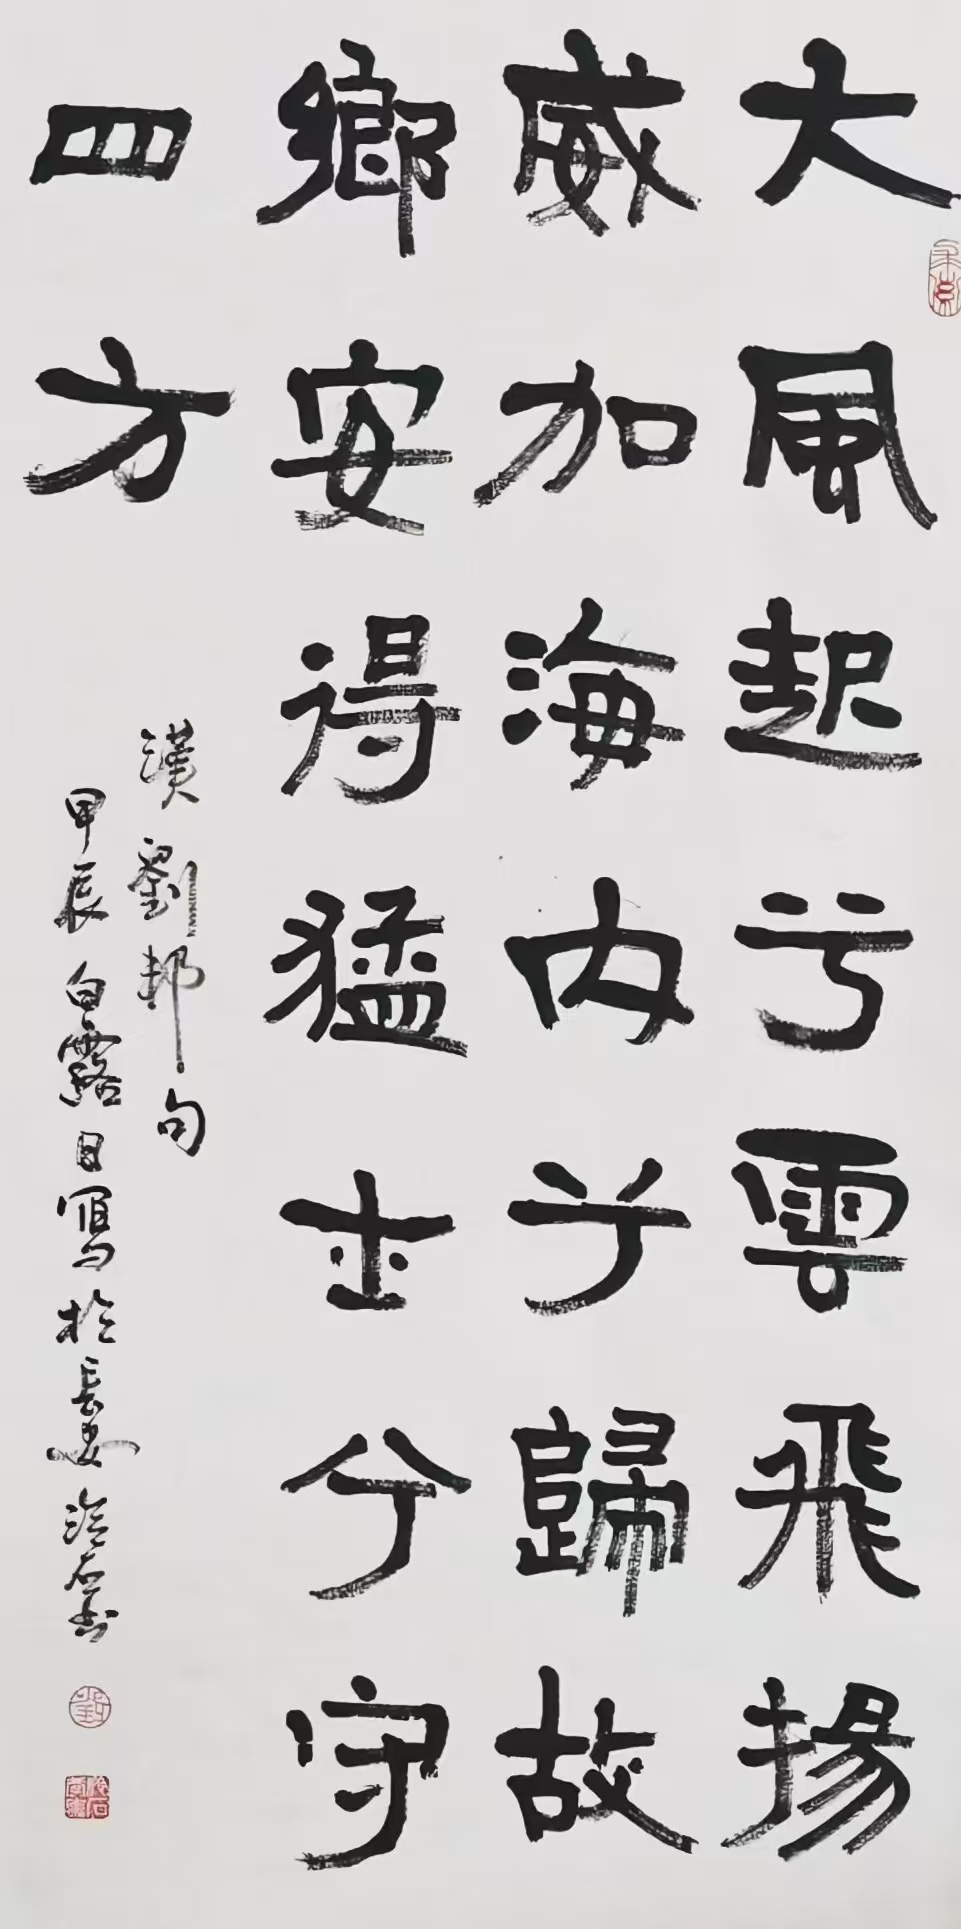 大風起兮雲飛揚
威加海内兮歸故
鄉安得猛士兮守
四方
漢劉邦句
甲辰白露日寫於長安浛石書